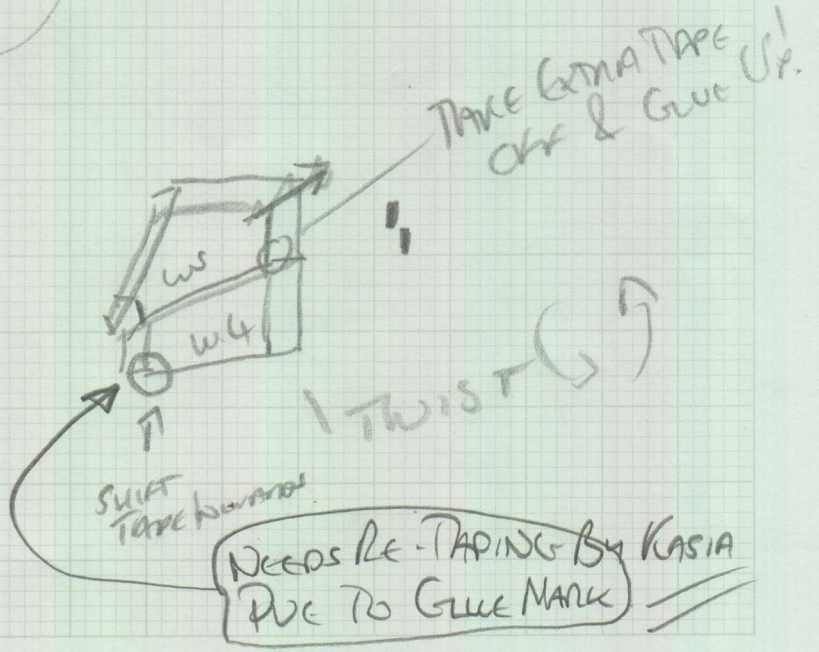 TAKE EXTRA TAPE
OFF & GLUE UP!
W5
W.4
TWIST
SHIFT
TAPE
NEEDS RE-TAPING BY KASIA
DUE TO GLUE MARK